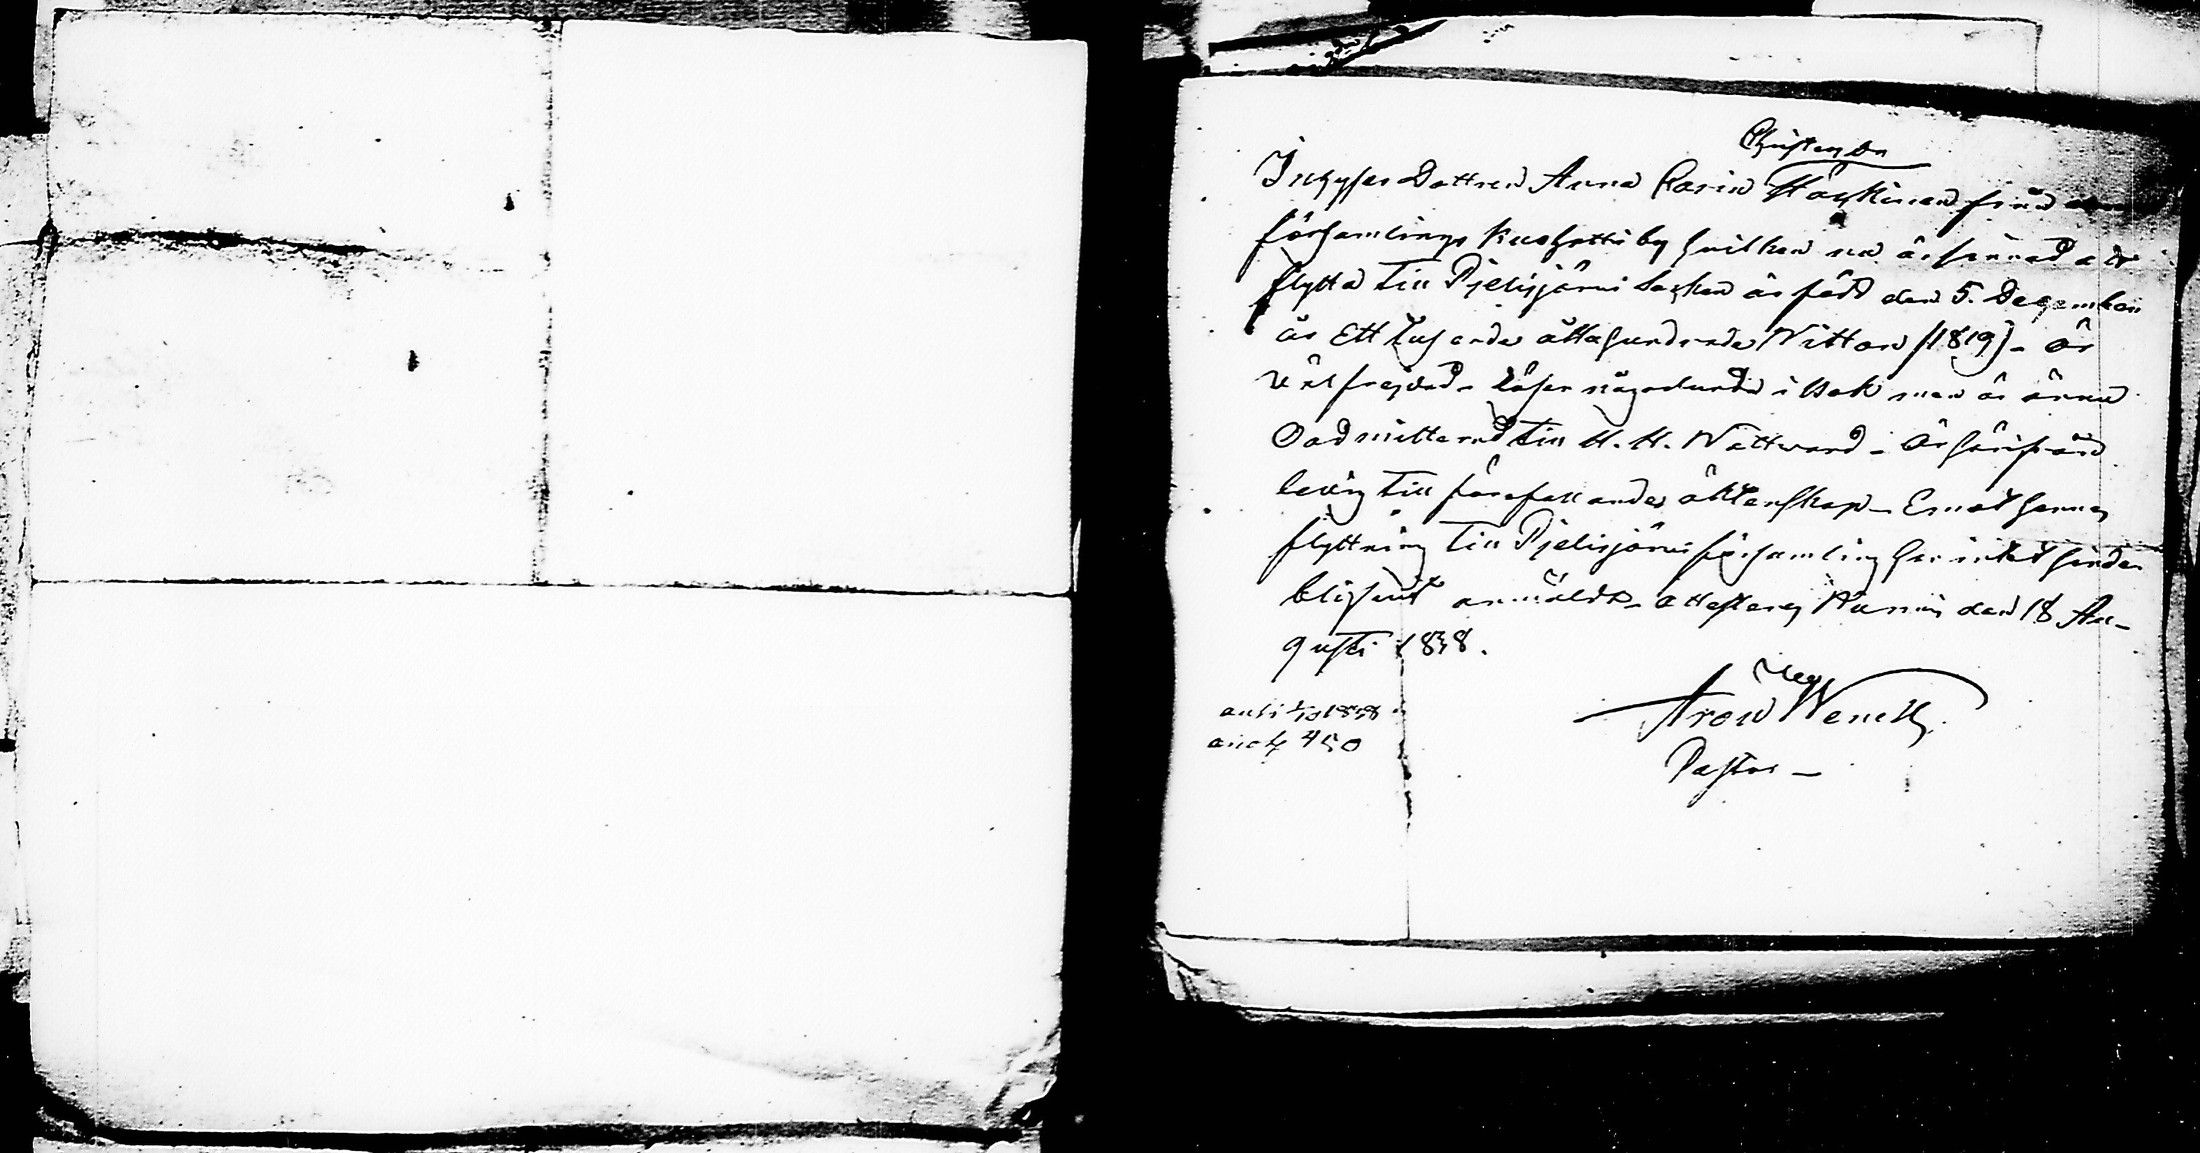 Christers Dr
Inhyses Dottren Anna Carin Haskinen från
församlings Kuohatti by hvilken nu är sinnad att
flytta till Pielisjärvi Sockn är född den 5. December
år Ett tusende åttahundrade Nitton /1819/ - är
Välfrejdad - läser någorlunda i bok men är ännu
Oadmitterad till H. H. Nattward - är härifrån
ledig till förefallande äktenskap - Emot hennes
flyttning till Pielisjärvi församling har intet hinder
blifvit anmäldt - attesteras Nurmis den 18 Au-
gusti 1838.
Aron Wenell
Pastor -
anh: 1/10 1838
450